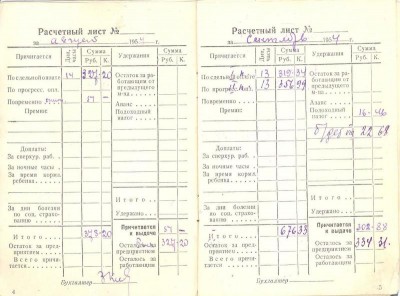 Расчетный лист №
за август 195 г.
Причитается
Дни, часы
Сумма
Руб. К.
Удержания
Сумма
Руб. К.
По сдельной оплате 14 327-20
Остаток за работающим от предыдущего м-ца
По прогресс. опл.
Повременно
Аванс
Премия:
Подоходный налог
Доплаты:
За сверхур. раб.
За ночные часы
За время кормл. ребенка
Итого
Итого
За дни болезни по соц. страхованию
Удержано
Итого
Причитается к выдаче
Остаток за предприятием
Осталось за предприятием 327-20
Всего причитается
Осталось за работающим
Цехконтер
4
Расчетный лист №
за Сентябрь 195 г.
Причитается
Дни, часы
Сумма
Руб. К.
Удержания
Сумма
Руб. К.
По сдельной опл. 13 319-34
Остаток за работающим от предыдущего м-ца
По прогр. 13 356-99
Повременно
Аванс
Премия:
Подоходный налог 16-46
22 68
Доплаты:
За сверхур. раб.
За ночные часы
За время кормл. ребенка
Итого
Итого
За дни болезни по соц. страхованию
Удержано
Итого 676 33
Причитается к выдаче 302-88
Остаток за предприятием
Осталось за предприятием 334 31
Всего причитается
Осталось за работающим
Цехконтер
5